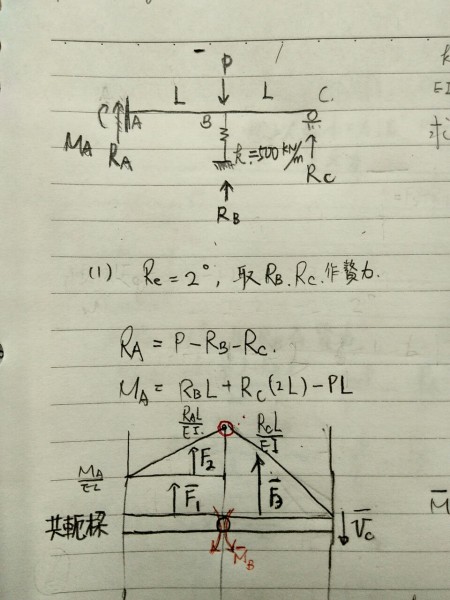 P
L L C.
A B
k=500 kN/m
MA RA RC
RB
(1) Re=2°, 取 RB. RC. 作贅力.
RA = P-RB-RC.
MA = RBL+RC(2L)-PL
RAL/EI. RCL/EI
MA/EI F̄2
F̄1 F̄3
共軛樑 V̄C
M̄B
M̄
EI